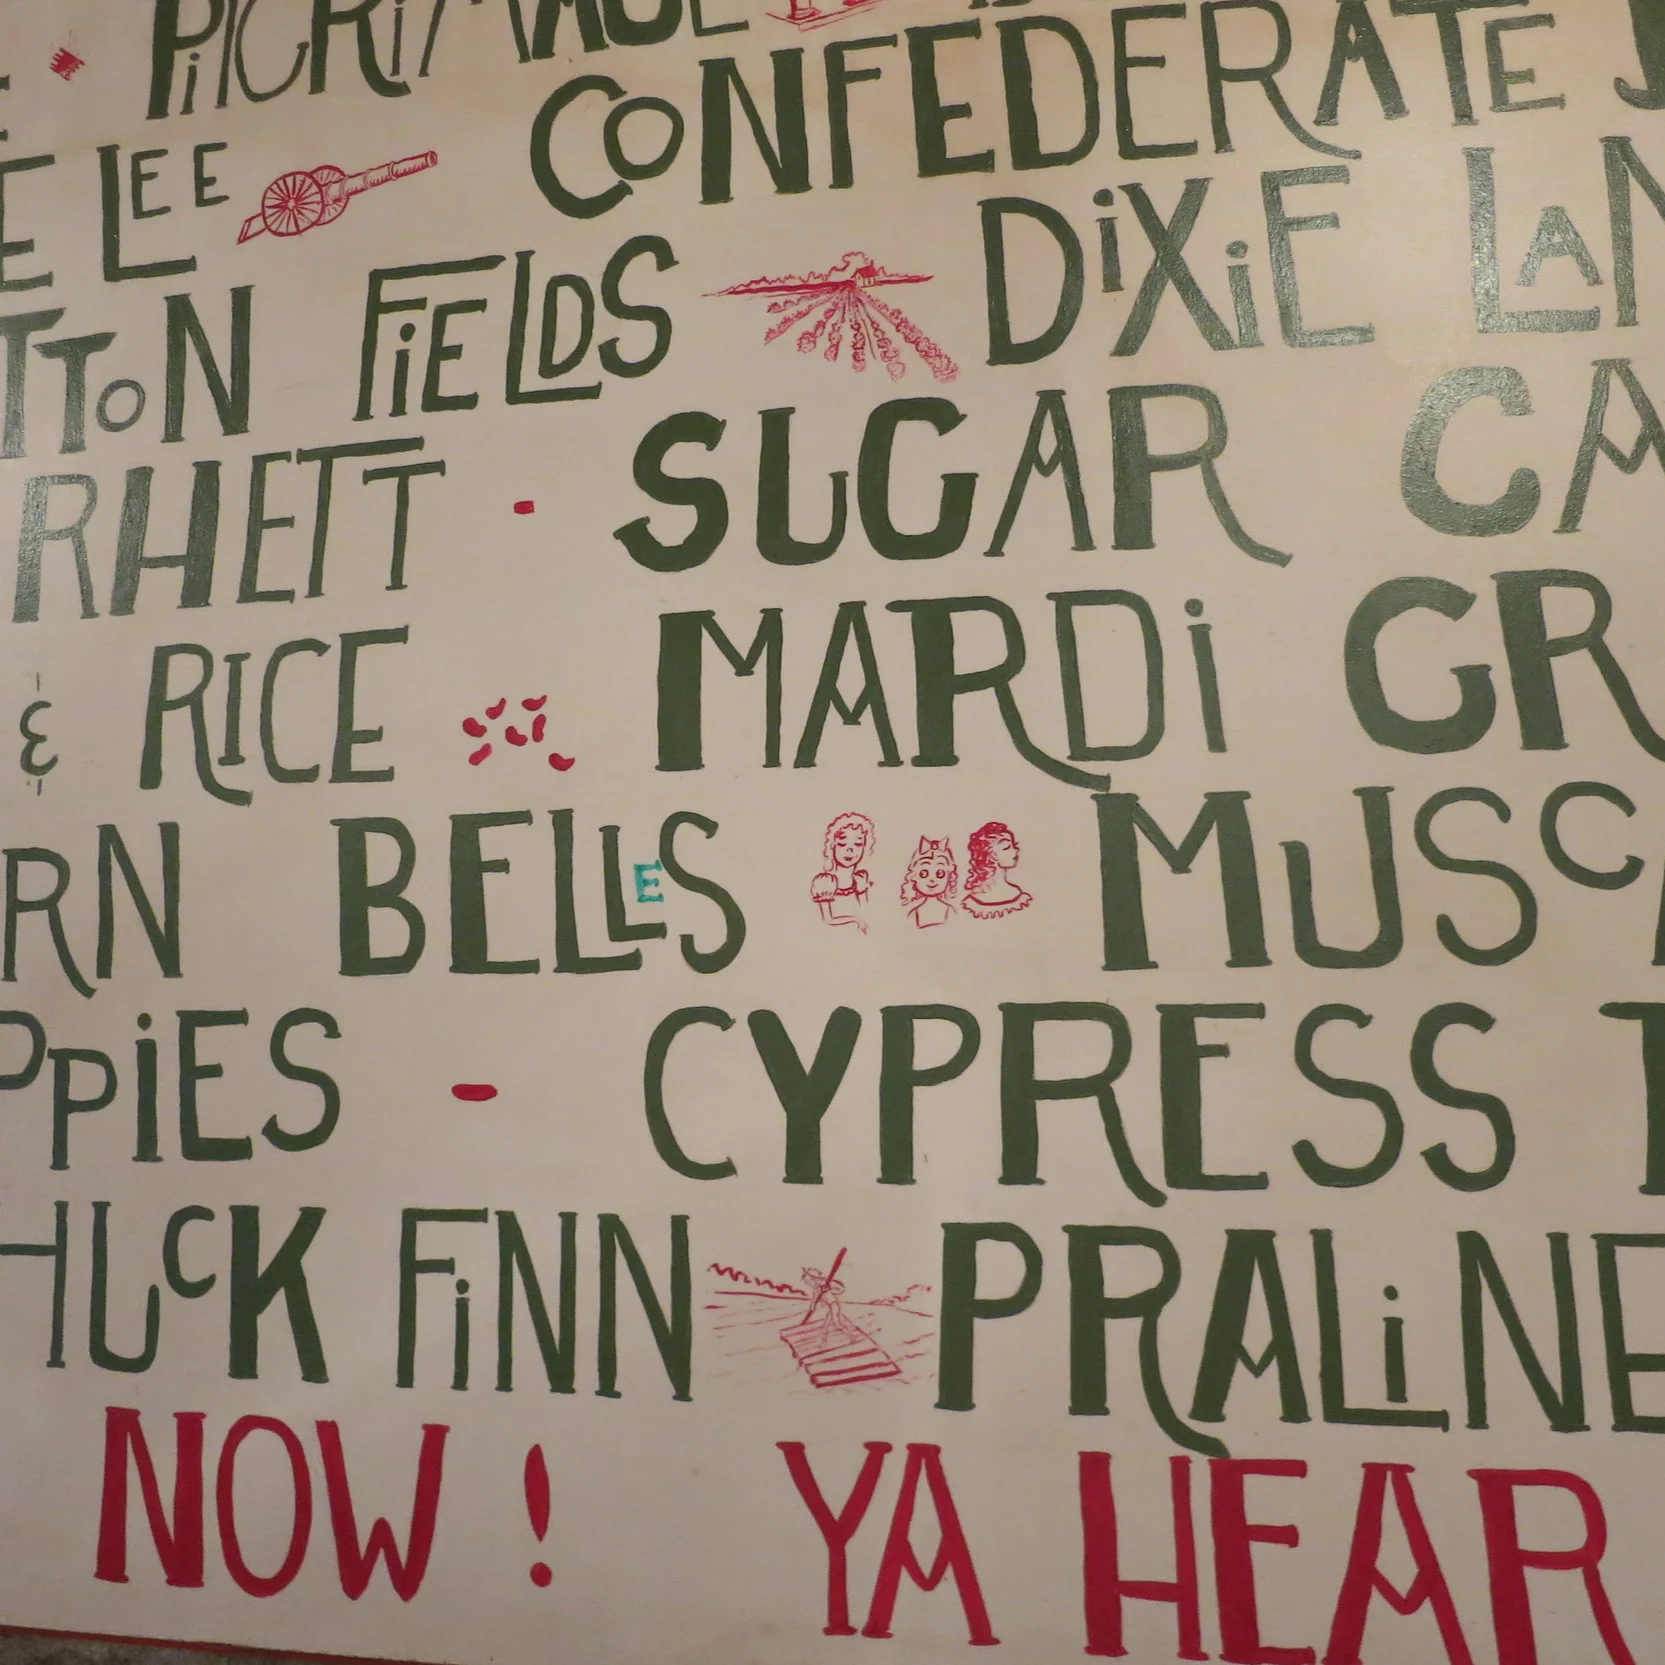 PiLGRiMAGE
LEE CONFEDERATE
FiELDS DiXiE LAN
RHETT - SUGAR CA
& RICE MARDi GR
RN BELLES MUSCA
PPiES - CYPRESS T
HUcK FiNN PRALiNE
NOW! YA HEAR